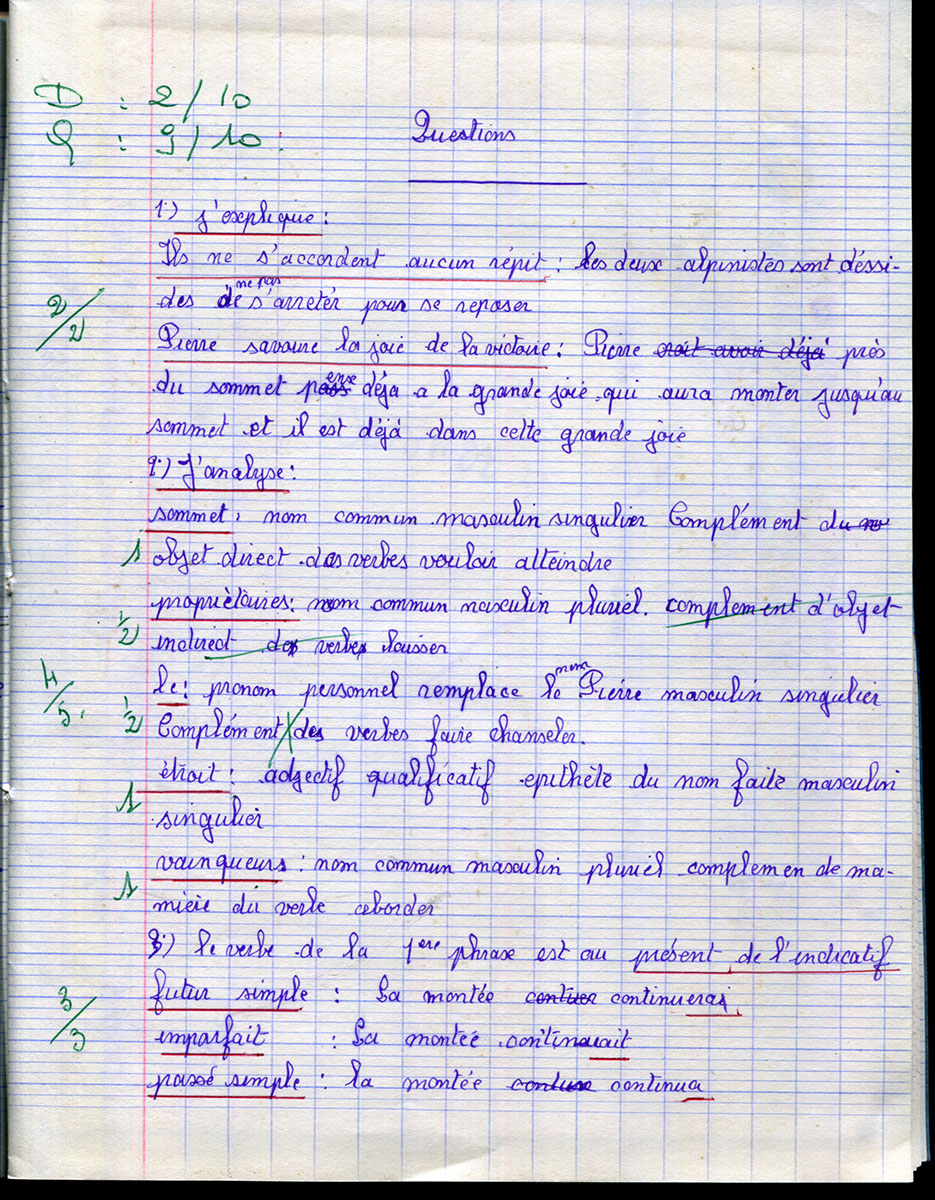 D : 2/10
Q : 9/10.
Questions
1.) J'explique :
Ils ne s'accordent aucun répit : les deux alpinistes sont déssi-
dés de ne pas s'arretér pour se reposer
2/2
Pierre savoure la joie de la victoire : Pierre était avoir déjà près
du sommet pense déja a la grande joie qui aura monter jusqu'au
sommet et il est déjà dans cette grande joie
2.) J'analyse :
sommet, nom commun masculin singulier Complément du
1 objet direct des verbes vouloir atteindre
propriètaires : nom commun masculin pluriel. complement d'objet
1/2 indirect des verbes laisser
4/5. le : pronom personnel remplace le nom Pierre masculin singulier
1/2 Complément des verbes faire chanseler.
étroit : adjectif qualificatif epithète du nom faite masculin
1 singulier
vainqueurs : nom commun masculin pluriel complemen de ma-
1 nière du verbe aborder
3.) le verbe de la 1ere phrase est au présent de l'indicatif
futur simple : La montée continuerai
3/3
imparfait : La montée continuait
passé simple : la montée continua